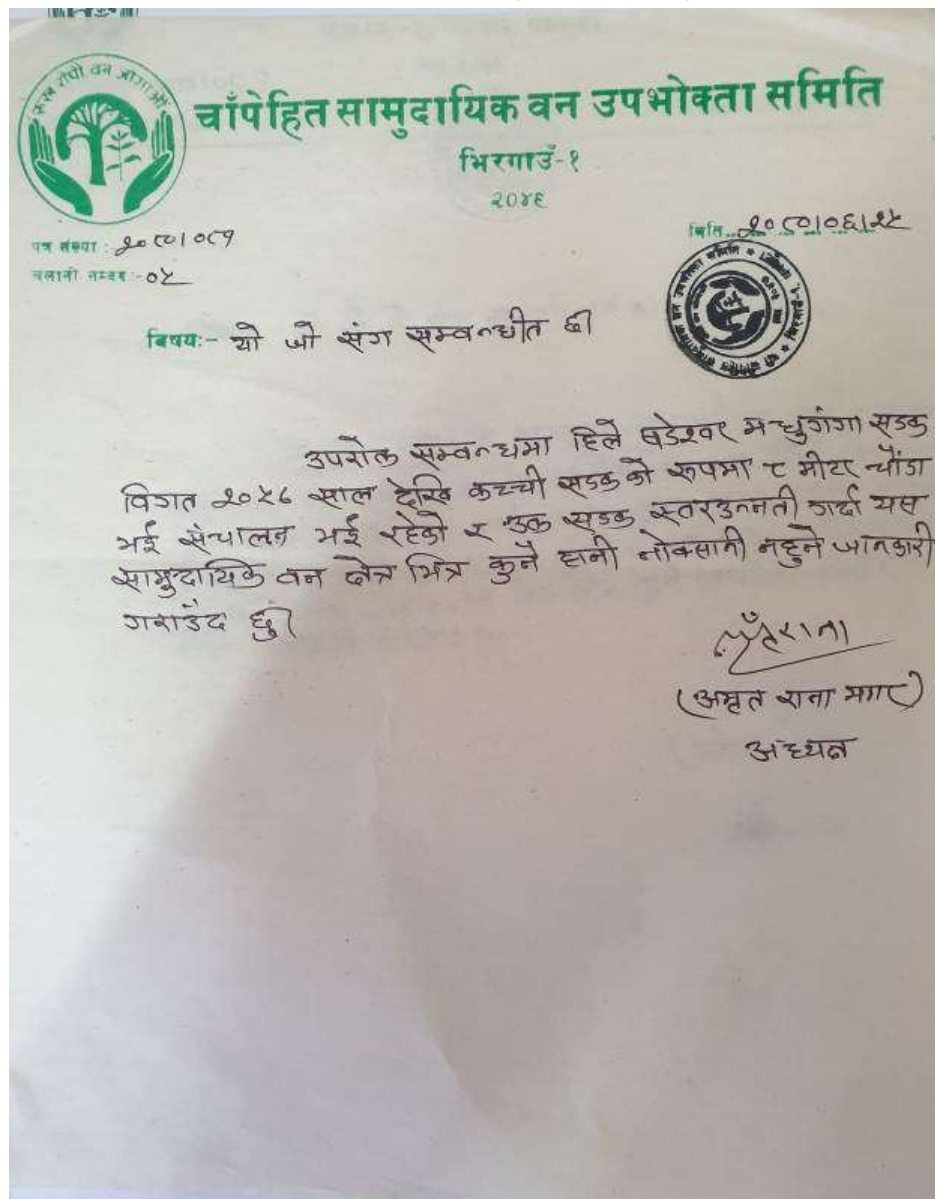 रूख रोपौं वन जोगाऔं
चाँपेहित सामुदायिक वन उपभोक्ता समिति
भिरगाउँ-१
२०४६
पत्र संख्या : २०८०।०८१
मिति...२०८०।०६।२५
चलानी नम्बर :- ०५
बिषय:- यो जो संग सम्बन्धीत छ।
उपरोक्त सम्बन्धमा हिले बडेश्वर मच्चुगंगा सडक
विगत २०५६ साल देखि कच्ची सडकको रूपमा ८ मीटर चौंडा
भई संचालन भई रहेको र उक्त सडक स्तरउन्नती गर्दा यस
सामुदायिक वन क्षेत्र भित्र कुनै हानी नोक्सानी नहुने जानकारी
गराउँद छु।
(अमृत राना मगर)
अध्यक्ष